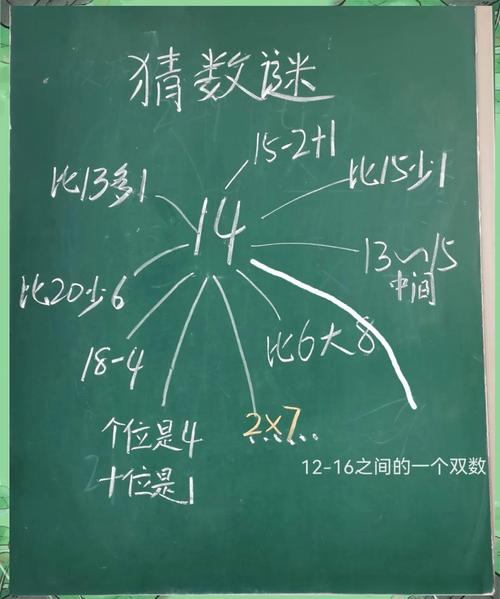 猜数谜
15-2+1
比13多1
比15少1
14
13~15
中间
比20少6
比6大8
18-4
个位是4
十位是1
2×7
12-16之间的一个双数